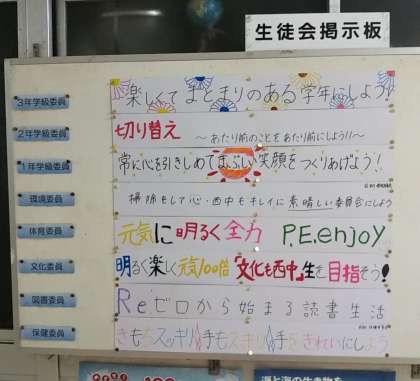 生徒会掲示板
3年学級委員
楽しくてまとまりのある学年にしよう!
2年学級委員
切り替え ～あたり前のことをあたり前にしよう!!～
1年学級委員
常に心を引きしめてまぶしい笑顔をつくりあげよう!
環境委員
掃除をして心・西中もキレイに素晴しい委員会にしよう
体育委員
元気に明るく全力 P.E.enjoy
文化委員
明るく楽しく元気100倍『文化も西中』生を目指そう!
図書委員
Reゼロから始まる読書生活
保健委員
きもちスッキリ手もスッキリ手をきれいにしよう
海と海の生き物を